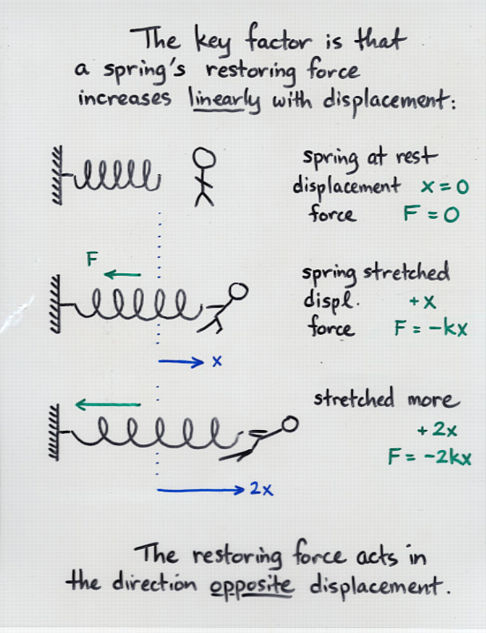 The key factor is that
a spring's restoring force
increases linearly with displacement:
spring at rest
displacement x = 0
force F = 0
F
spring stretched
displ. +x
force F = -kx
x
stretched more
+2x
F = -2kx
2x
The restoring force acts in
the direction opposite displacement.